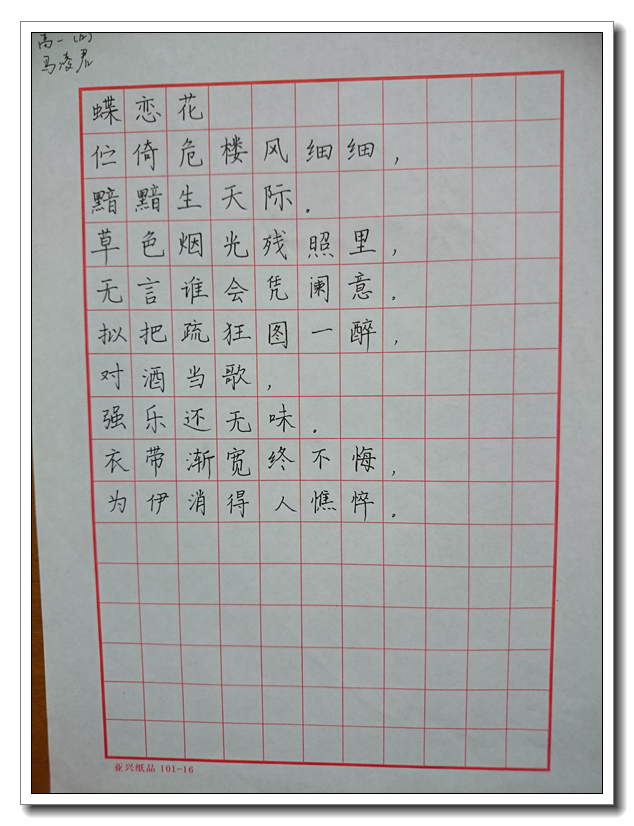 高一(四)
马凌君
蝶恋花
伫倚危楼风细细，
黯黯生天际。
草色烟光残照里，
无言谁会凭阑意。
拟把疏狂图一醉，
对酒当歌，
强乐还无味。
衣带渐宽终不悔，
为伊消得人憔悴。
亚兴纸品 101-16